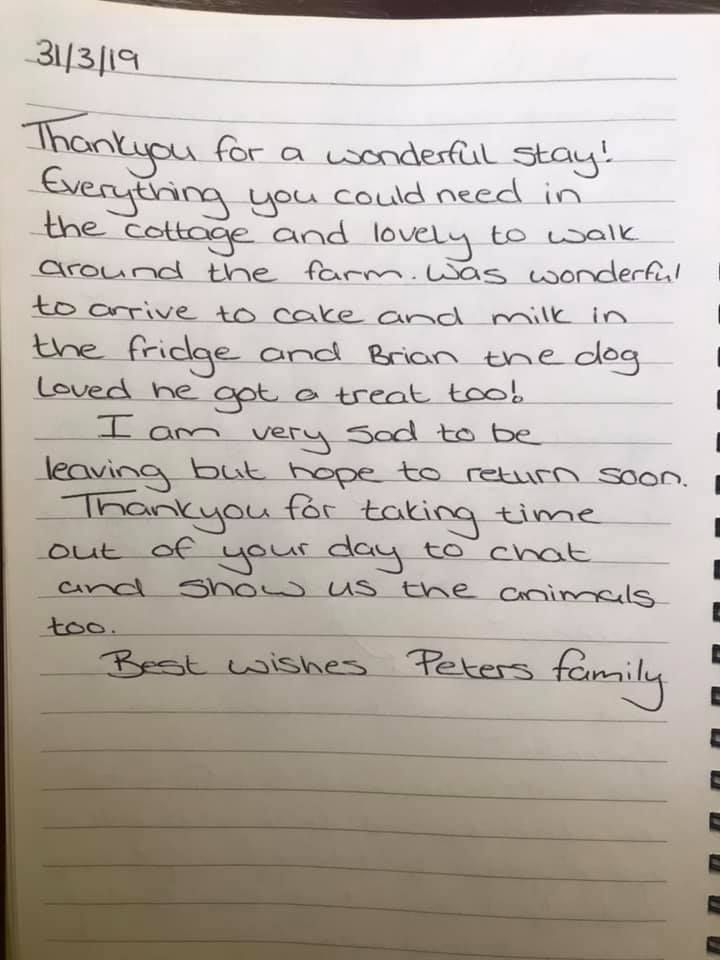 31/3/19
Thankyou for a wonderful stay!
Everything you could need in
the cottage and lovely to walk
around the farm. Was wonderful
to arrive to cake and milk in
the fridge and Brian the dog
loved he got a treat too!
I am very sad to be
leaving but hope to return soon.
Thankyou for taking time
out of your day to chat
and show us the animals
too.
Best wishes Peters family